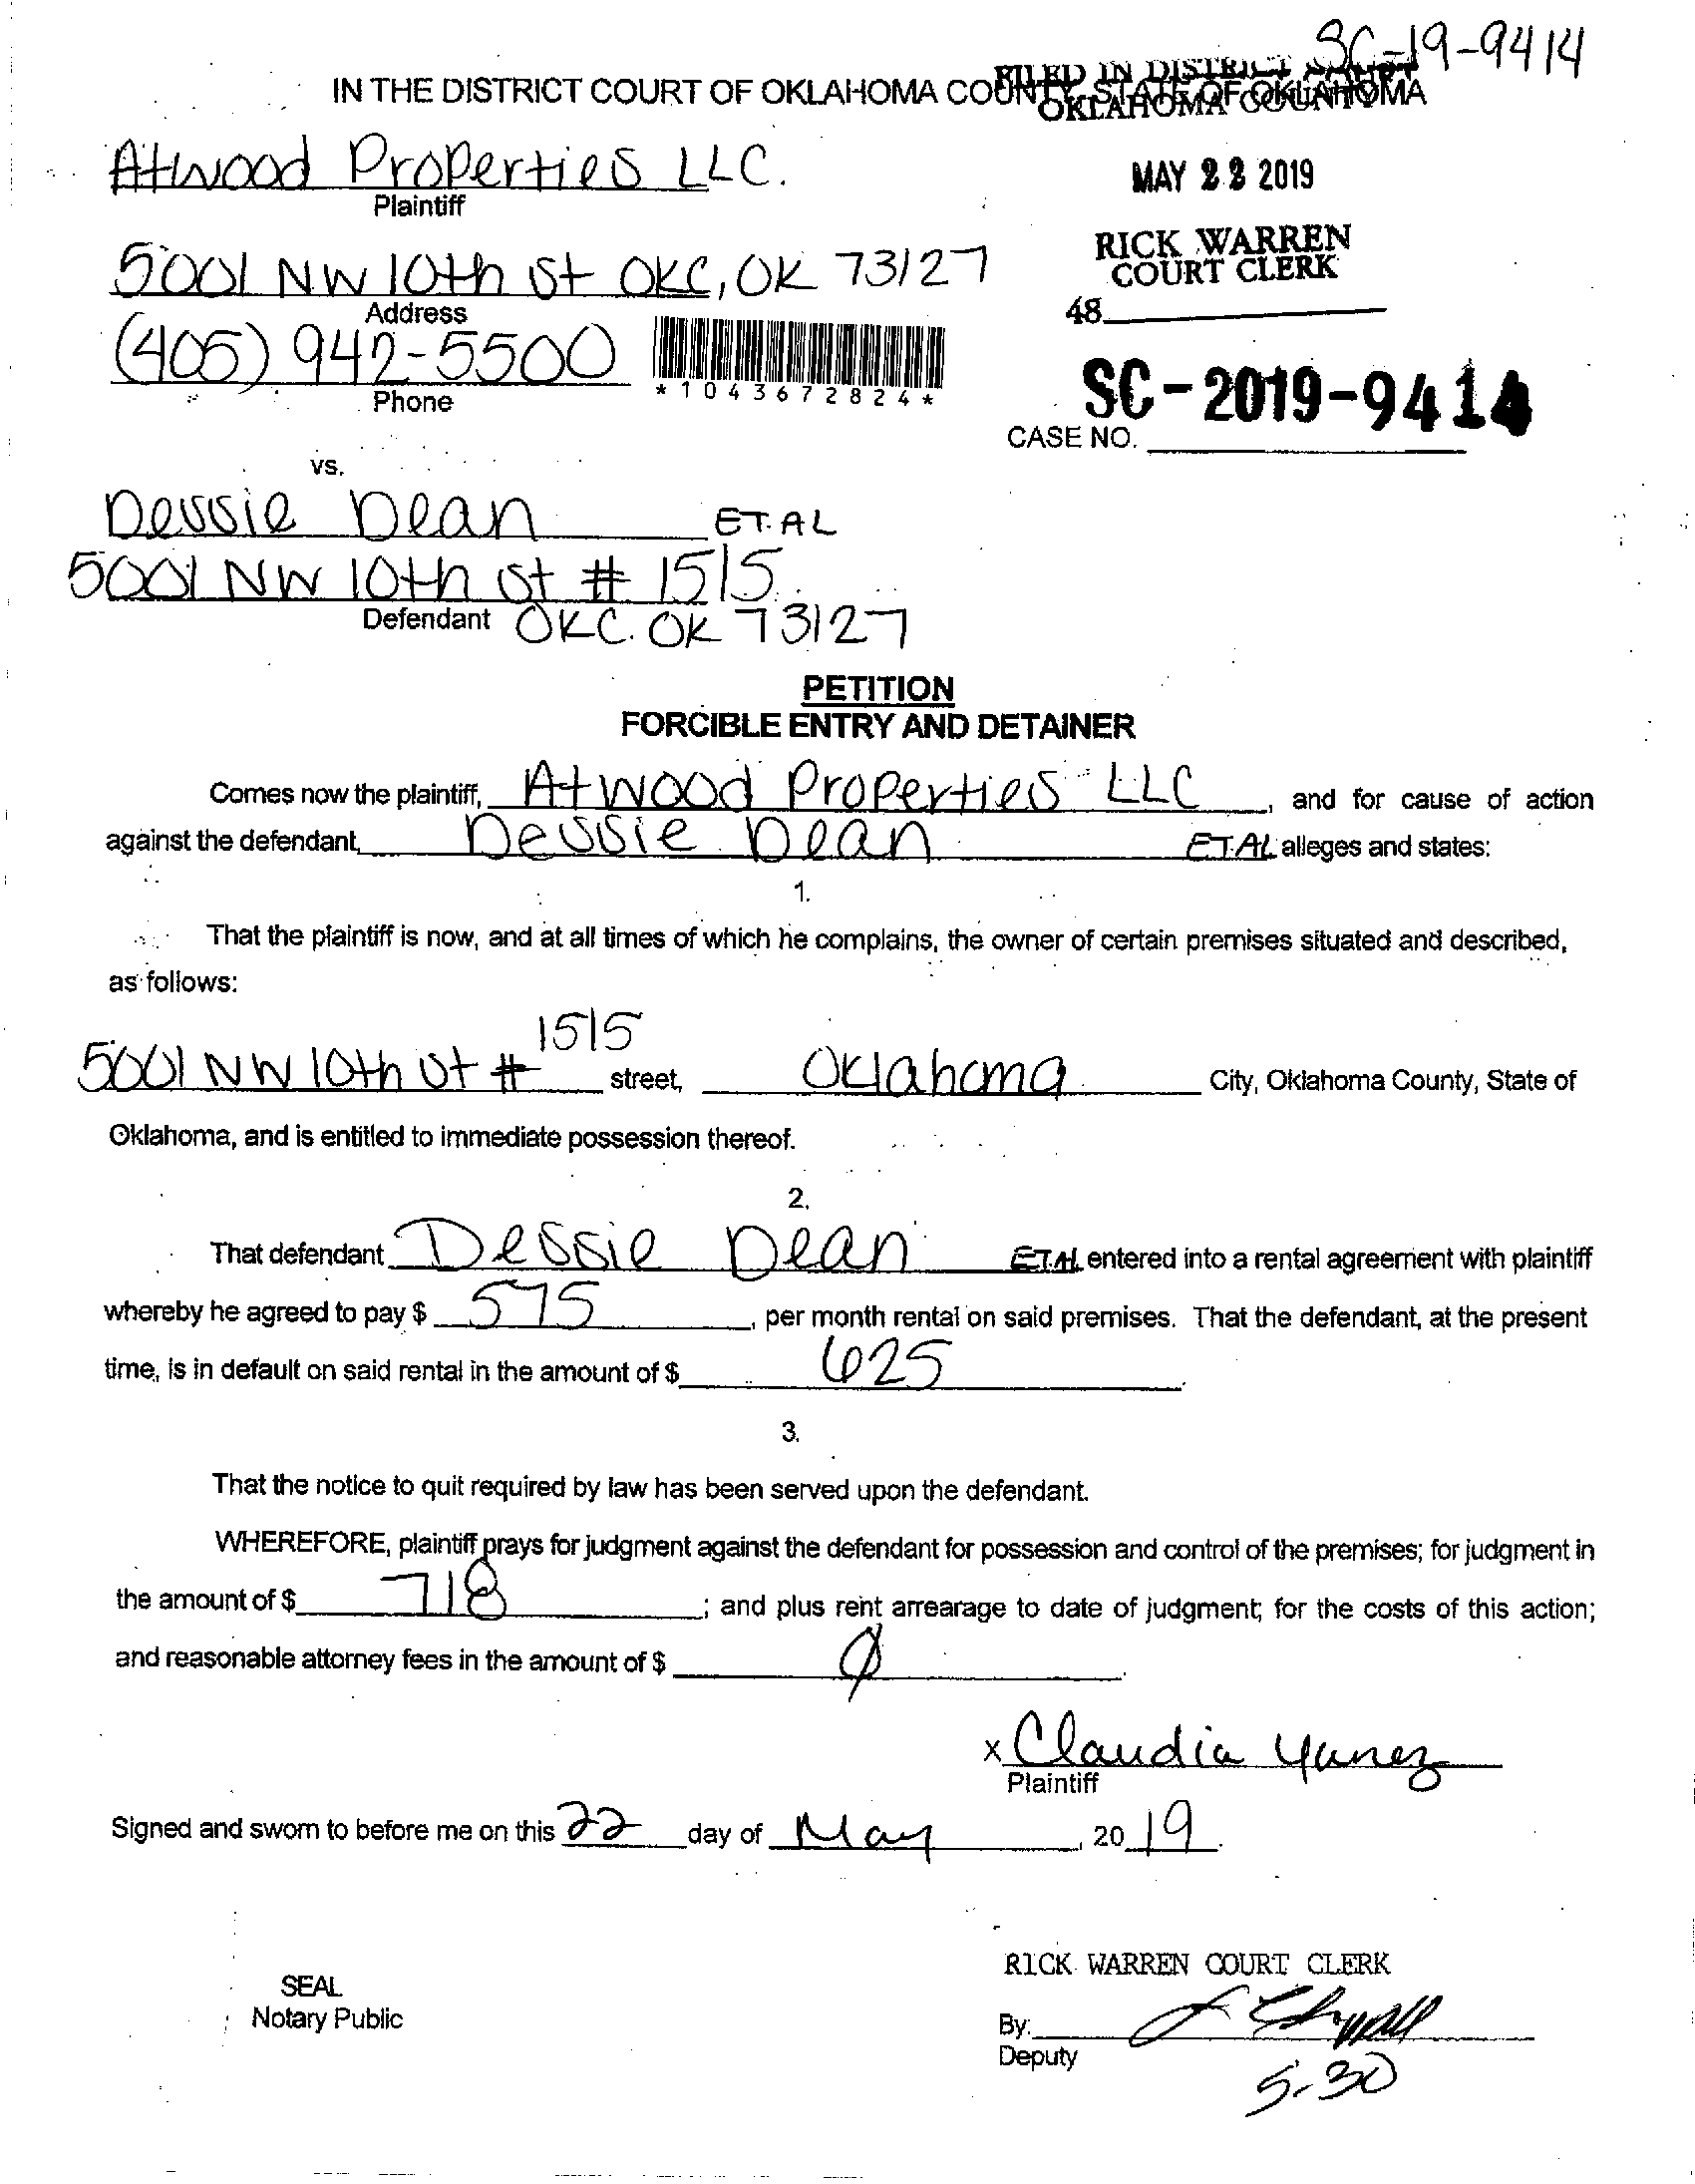 SC-19-9414
IN THE DISTRICT COURT OF OKLAHOMA COUNTY, STATE OF OKLAHOMA
FILED IN DISTRICT COURT
OKLAHOMA COUNTY
Atwood Properties LLC.
Plaintiff
MAY 22 2019
RICK WARREN
COURT CLERK
48
5001 NW 10th St OKC, OK 73127
Address
(405) 942-5500
Phone
*1043672824*
SC-2019-9414
CASE NO.
vs.
Dessie Dean ET.AL
5001 NW 10th St # 1515
Defendant OKC. OK 73127
PETITION
FORCIBLE ENTRY AND DETAINER
Comes now the plaintiff, Atwood Properties LLC, and for cause of action
against the defendant, Dessie Dean ET.AL alleges and states:
1.
That the plaintiff is now, and at all times of which he complains, the owner of certain premises situated and described,
as follows:
5001 NW 10th St # 1515 street, Oklahoma City, Oklahoma County, State of
Oklahoma, and is entitled to immediate possession thereof.
2.
That defendant Dessie Dean ET.AL entered into a rental agreement with plaintiff
whereby he agreed to pay $ 575, per month rental on said premises. That the defendant, at the present
time, is in default on said rental in the amount of $ 625.
3.
That the notice to quit required by law has been served upon the defendant.
WHEREFORE, plaintiff prays for judgment against the defendant for possession and control of the premises; for judgment in
the amount of $ 718; and plus rent arrearage to date of judgment; for the costs of this action;
and reasonable attorney fees in the amount of $ Ø.
x Claudia Yanez
Plaintiff
Signed and sworn to before me on this 22 day of May, 2019.
RICK WARREN COURT CLERK
SEAL
Notary Public
By:
Deputy
5-30